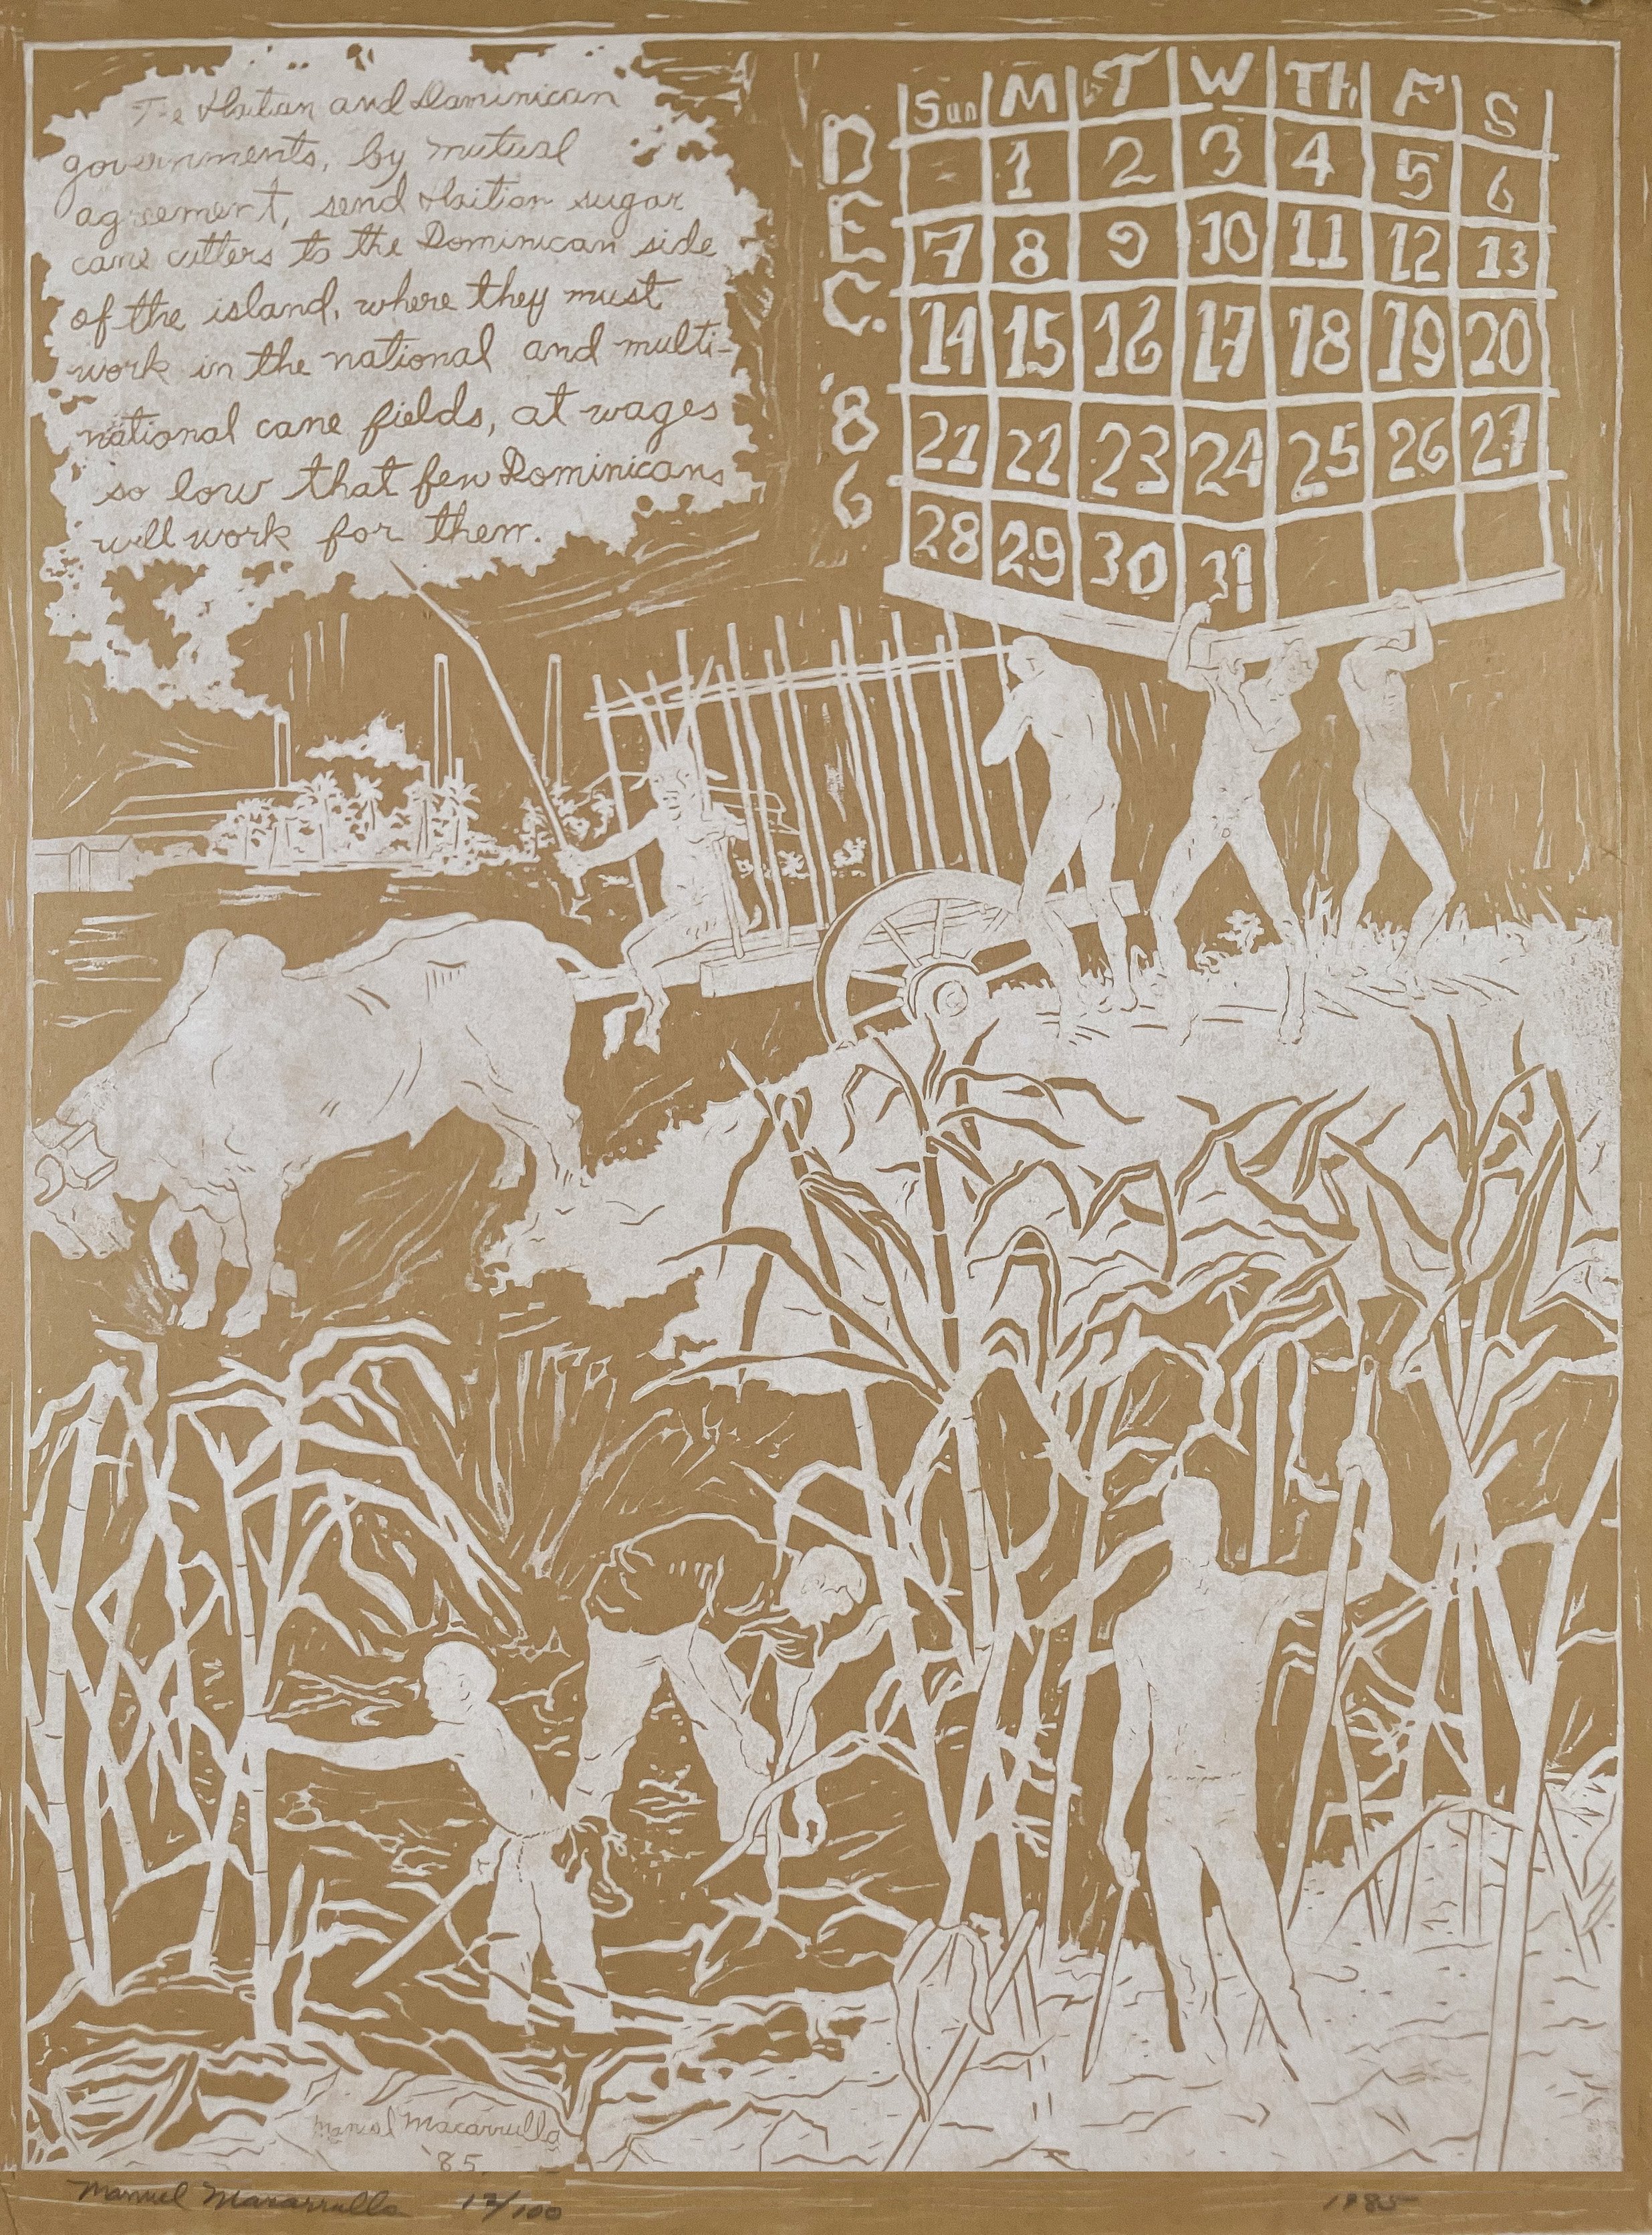 The Haitian and Dominican
governments, by mutual
agreement, send Haitian sugar
cane cutters to the Dominican side
of the island, where they must
work in the national and multi-
national cane fields, at wages
so low that few Dominicans
will work for them.
DEC. '86
Sun M T W Th F S
1 2 3 4 5 6
7 8 9 10 11 12 13
14 15 16 17 18 19 20
21 22 23 24 25 26 27
28 29 30 31
Manuel Macarrulla
'85.
Manuel Macarrulla 12/100 1985